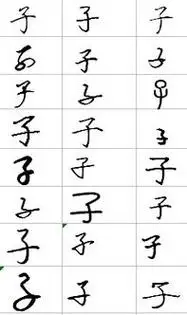 子 子 子
子 子 子
子 子 子
子 子 子
子 子 子
子 子 子
子 子 子
子 子 子